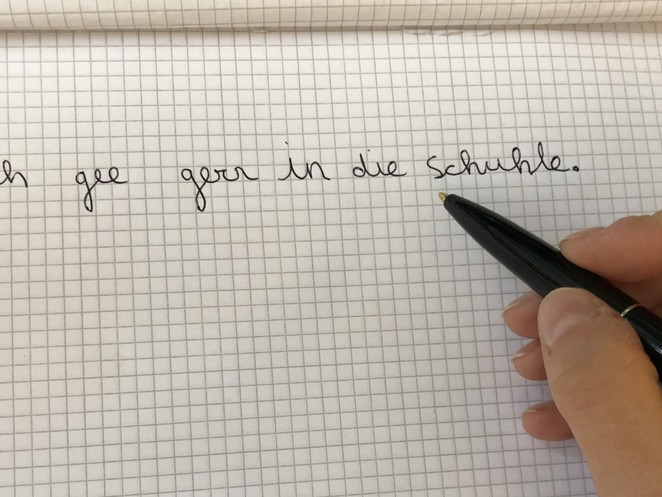 h gee gerr in die schuhle.